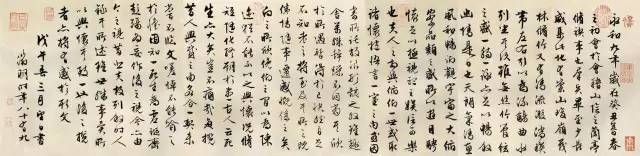 永和九年歲在癸丑暮春
之初會于會稽山陰之蘭亭
脩禊事也羣賢畢至少長
咸集此地有崇山峻嶺茂
林脩竹又有清流激湍暎
帶左右引以為流觴曲水
列坐其次雖無絲竹管弦
之盛一觴一詠亦足以暢敘
幽情是日也天朗氣清惠
風和暢仰觀宇宙之大俯
察品類之盛所以遊目騁
懷足以極視聽之娛信可樂
也夫人之相與俯仰一世或取
諸懷抱悟言一室之內或因
寄所託放浪形骸之外雖趣
舍萬殊靜躁不同當其欣
於所遇暫得於己快然自足不
知老之將至及其所之既倦
情隨事遷感慨係之矣
向之所欣俛仰之間以為陳
迹猶不能不以之興懷況脩
短隨化終期於盡古人云死
生亦大矣豈不痛哉每攬
昔人興感之由若合一契未
嘗不臨文嗟悼不能喻之
於懷固知一死生為虛誕齊
彭殤為妄作後之視今亦由
今之視昔悲夫故列敘時人
錄其所述雖世殊事異所
以興懷其致一也後之攬
者亦將有感於斯文
戊午春三月望日書
徵明時年八十有九